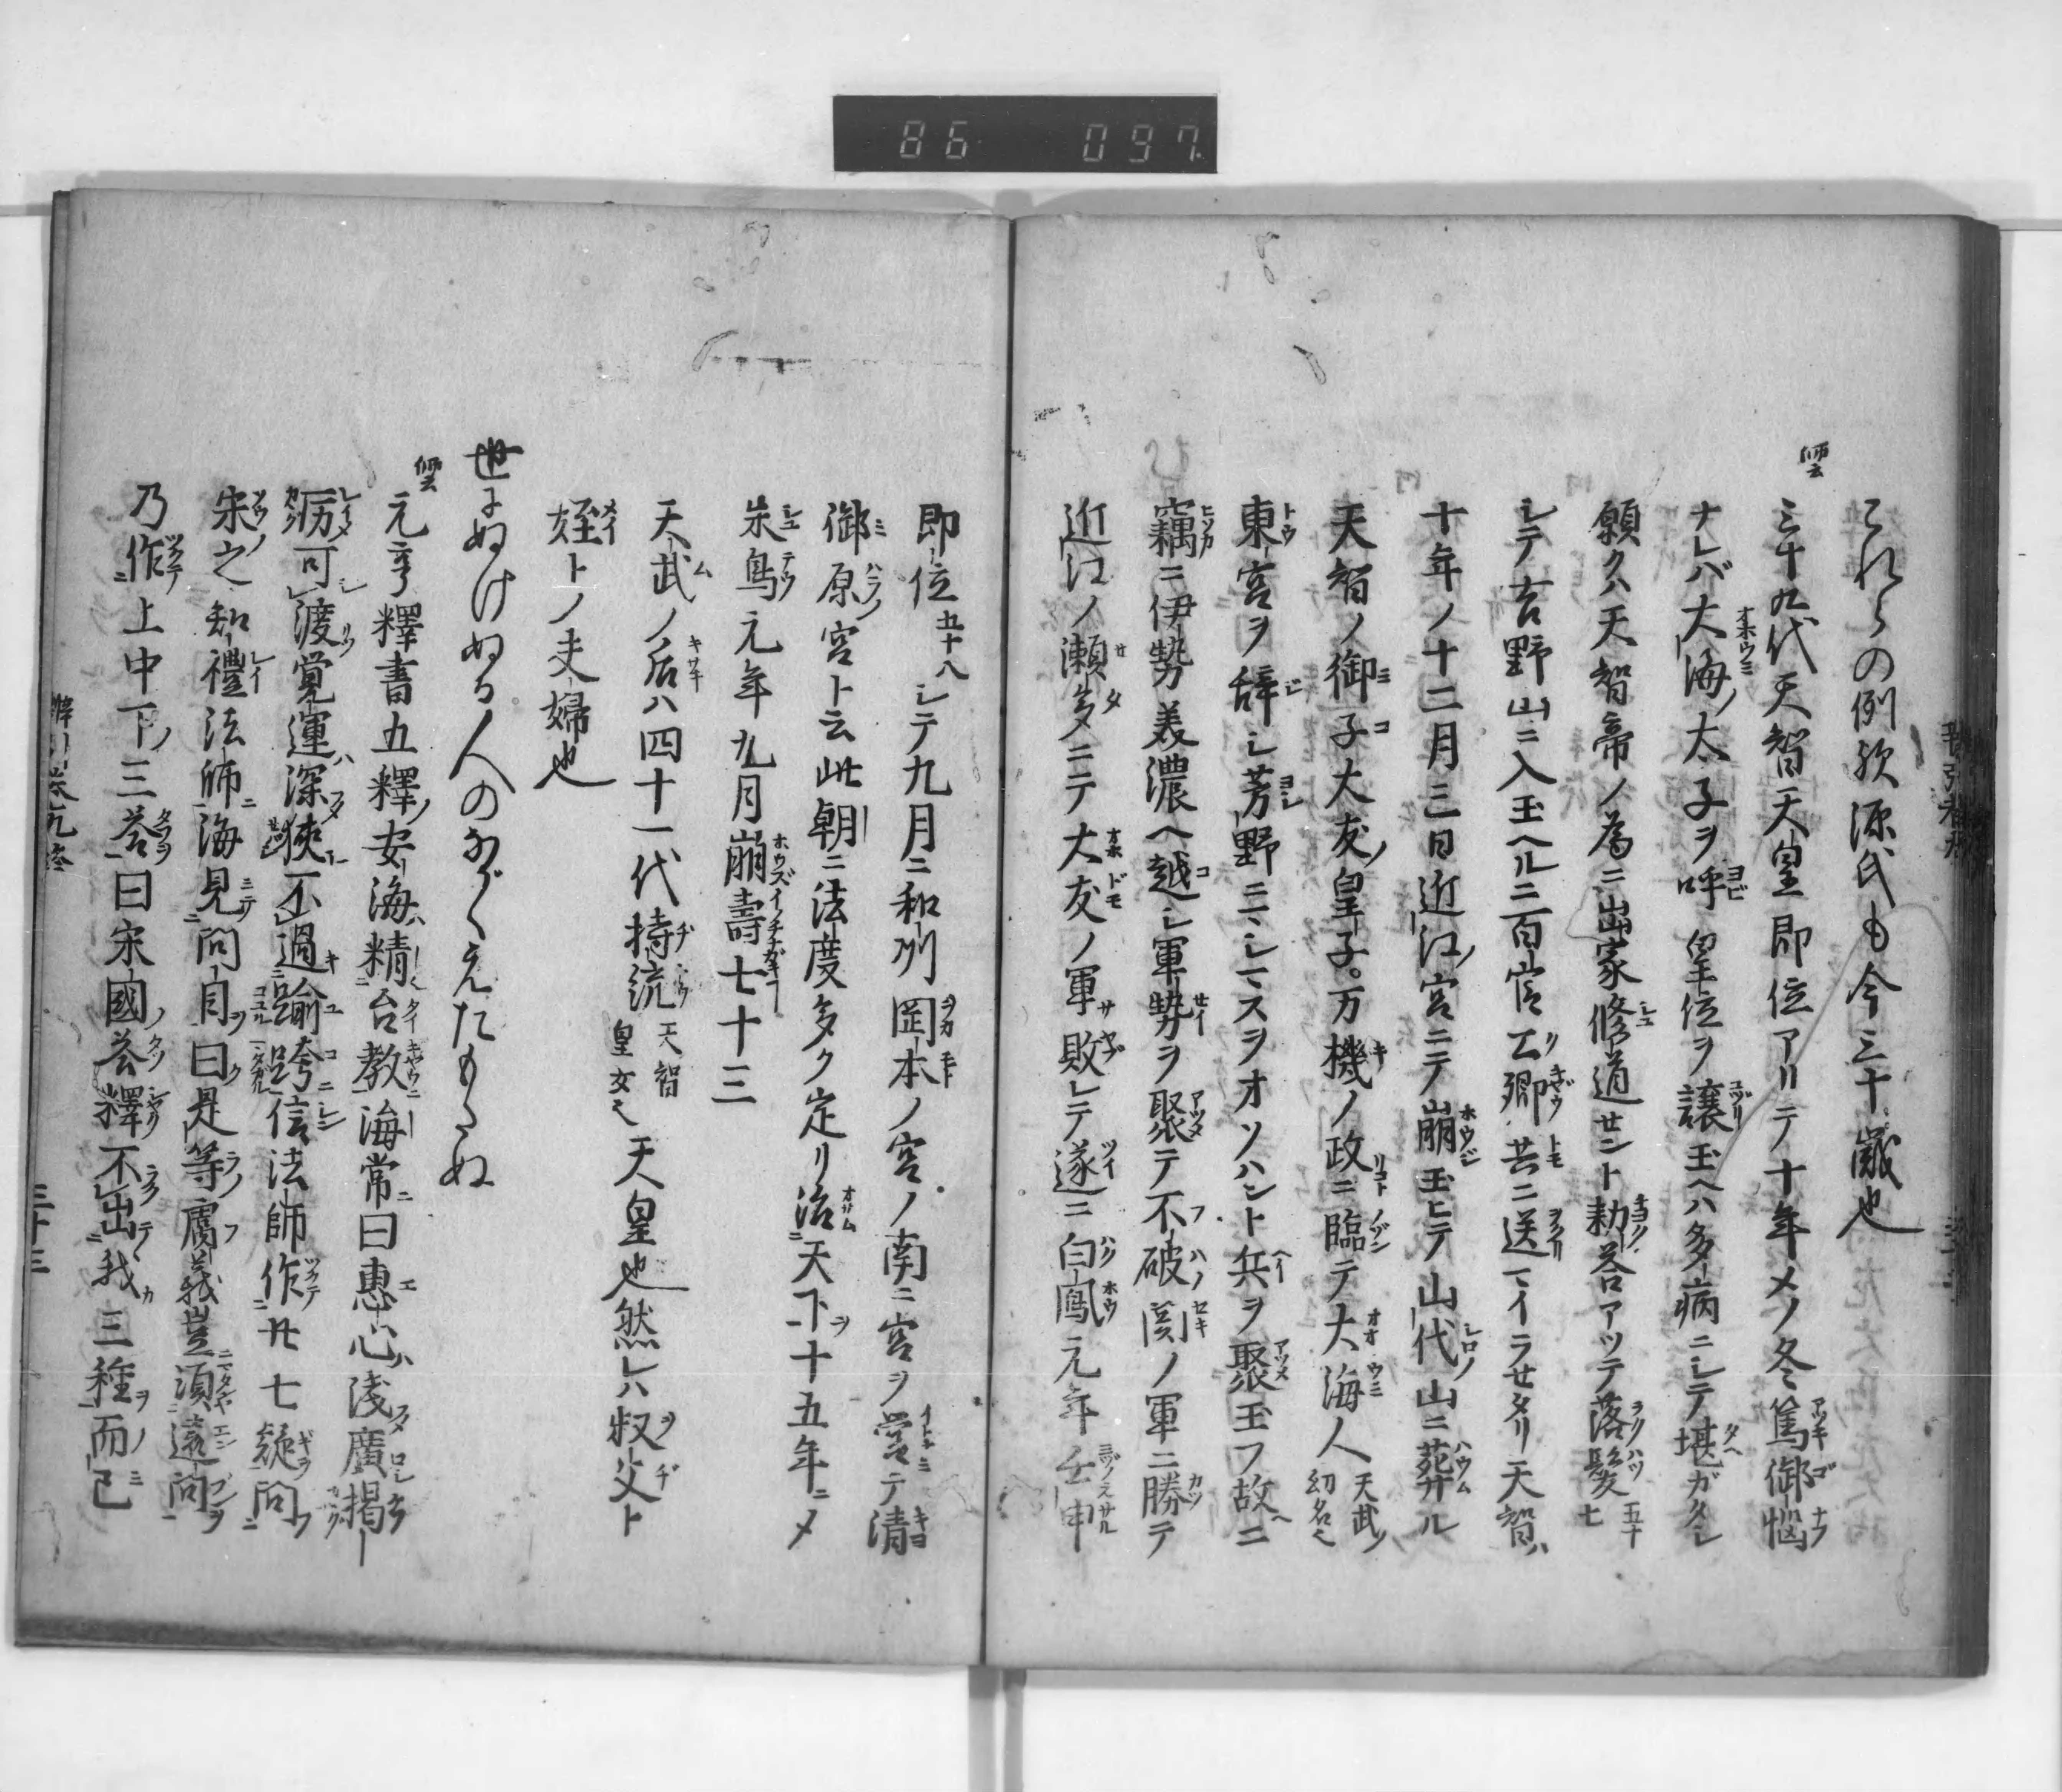 86 097
これらの例欤源氏も今三十歳也
三十九代天智天皇即位アリテ十年メノ冬篤御悩
ナレバ大海ノ太子ヲ呼皇位ヲ譲玉ヘハ多病ニシテ堪ガタシ
願クハ天智帝ノ為ニ出家修道セント勅答アツテ落髪五十七
シテ吉野山ニ入玉ヘル二百官公卿共ニ送マイラセタリ天智ハ
十年ノ十二月三日近江ノ宮ニテ崩玉ヒテ山代山ニ葬ル
天智ノ御子大友ノ皇子。万機ノ政ニ臨テ大海人天武ノ幼名也
東宮ヲ辞シ芳野ニニシマスヲオソハント兵ヲ聚玉フ故ニ
竊ニ伊勢美濃ヘ越シ軍勢ヲ聚テ不破関ノ軍ニ勝テ
近江ノ瀬多ニテ大友ノ軍敗レテ遂ニ白鳳元年壬申
即位五十八シテ九月ニ和州岡本ノ宮ノ南ニ宮ヲ営テ清
御原ノ宮ト云此朝ニ法度多ク定リ治天下十五年ニメ
朱鳥元年九月崩壽七十三
天武ノ后ハ四十一代持統天智皇女也天皇也然レハ叔父ト
姪トノ夫婦也
世にぬけぬる人の
元亨釋書五釋ノ安海ハ精台教海常曰恵心ハ浅廣掲
可渡覚運ハ深狭不過踰跨信法師作廿七疑問
宋之知禮法師海見問目曰是等膚義豈須遠問
乃作上中下ノ三荅曰宋國荅釋不出我三種而已
三十三